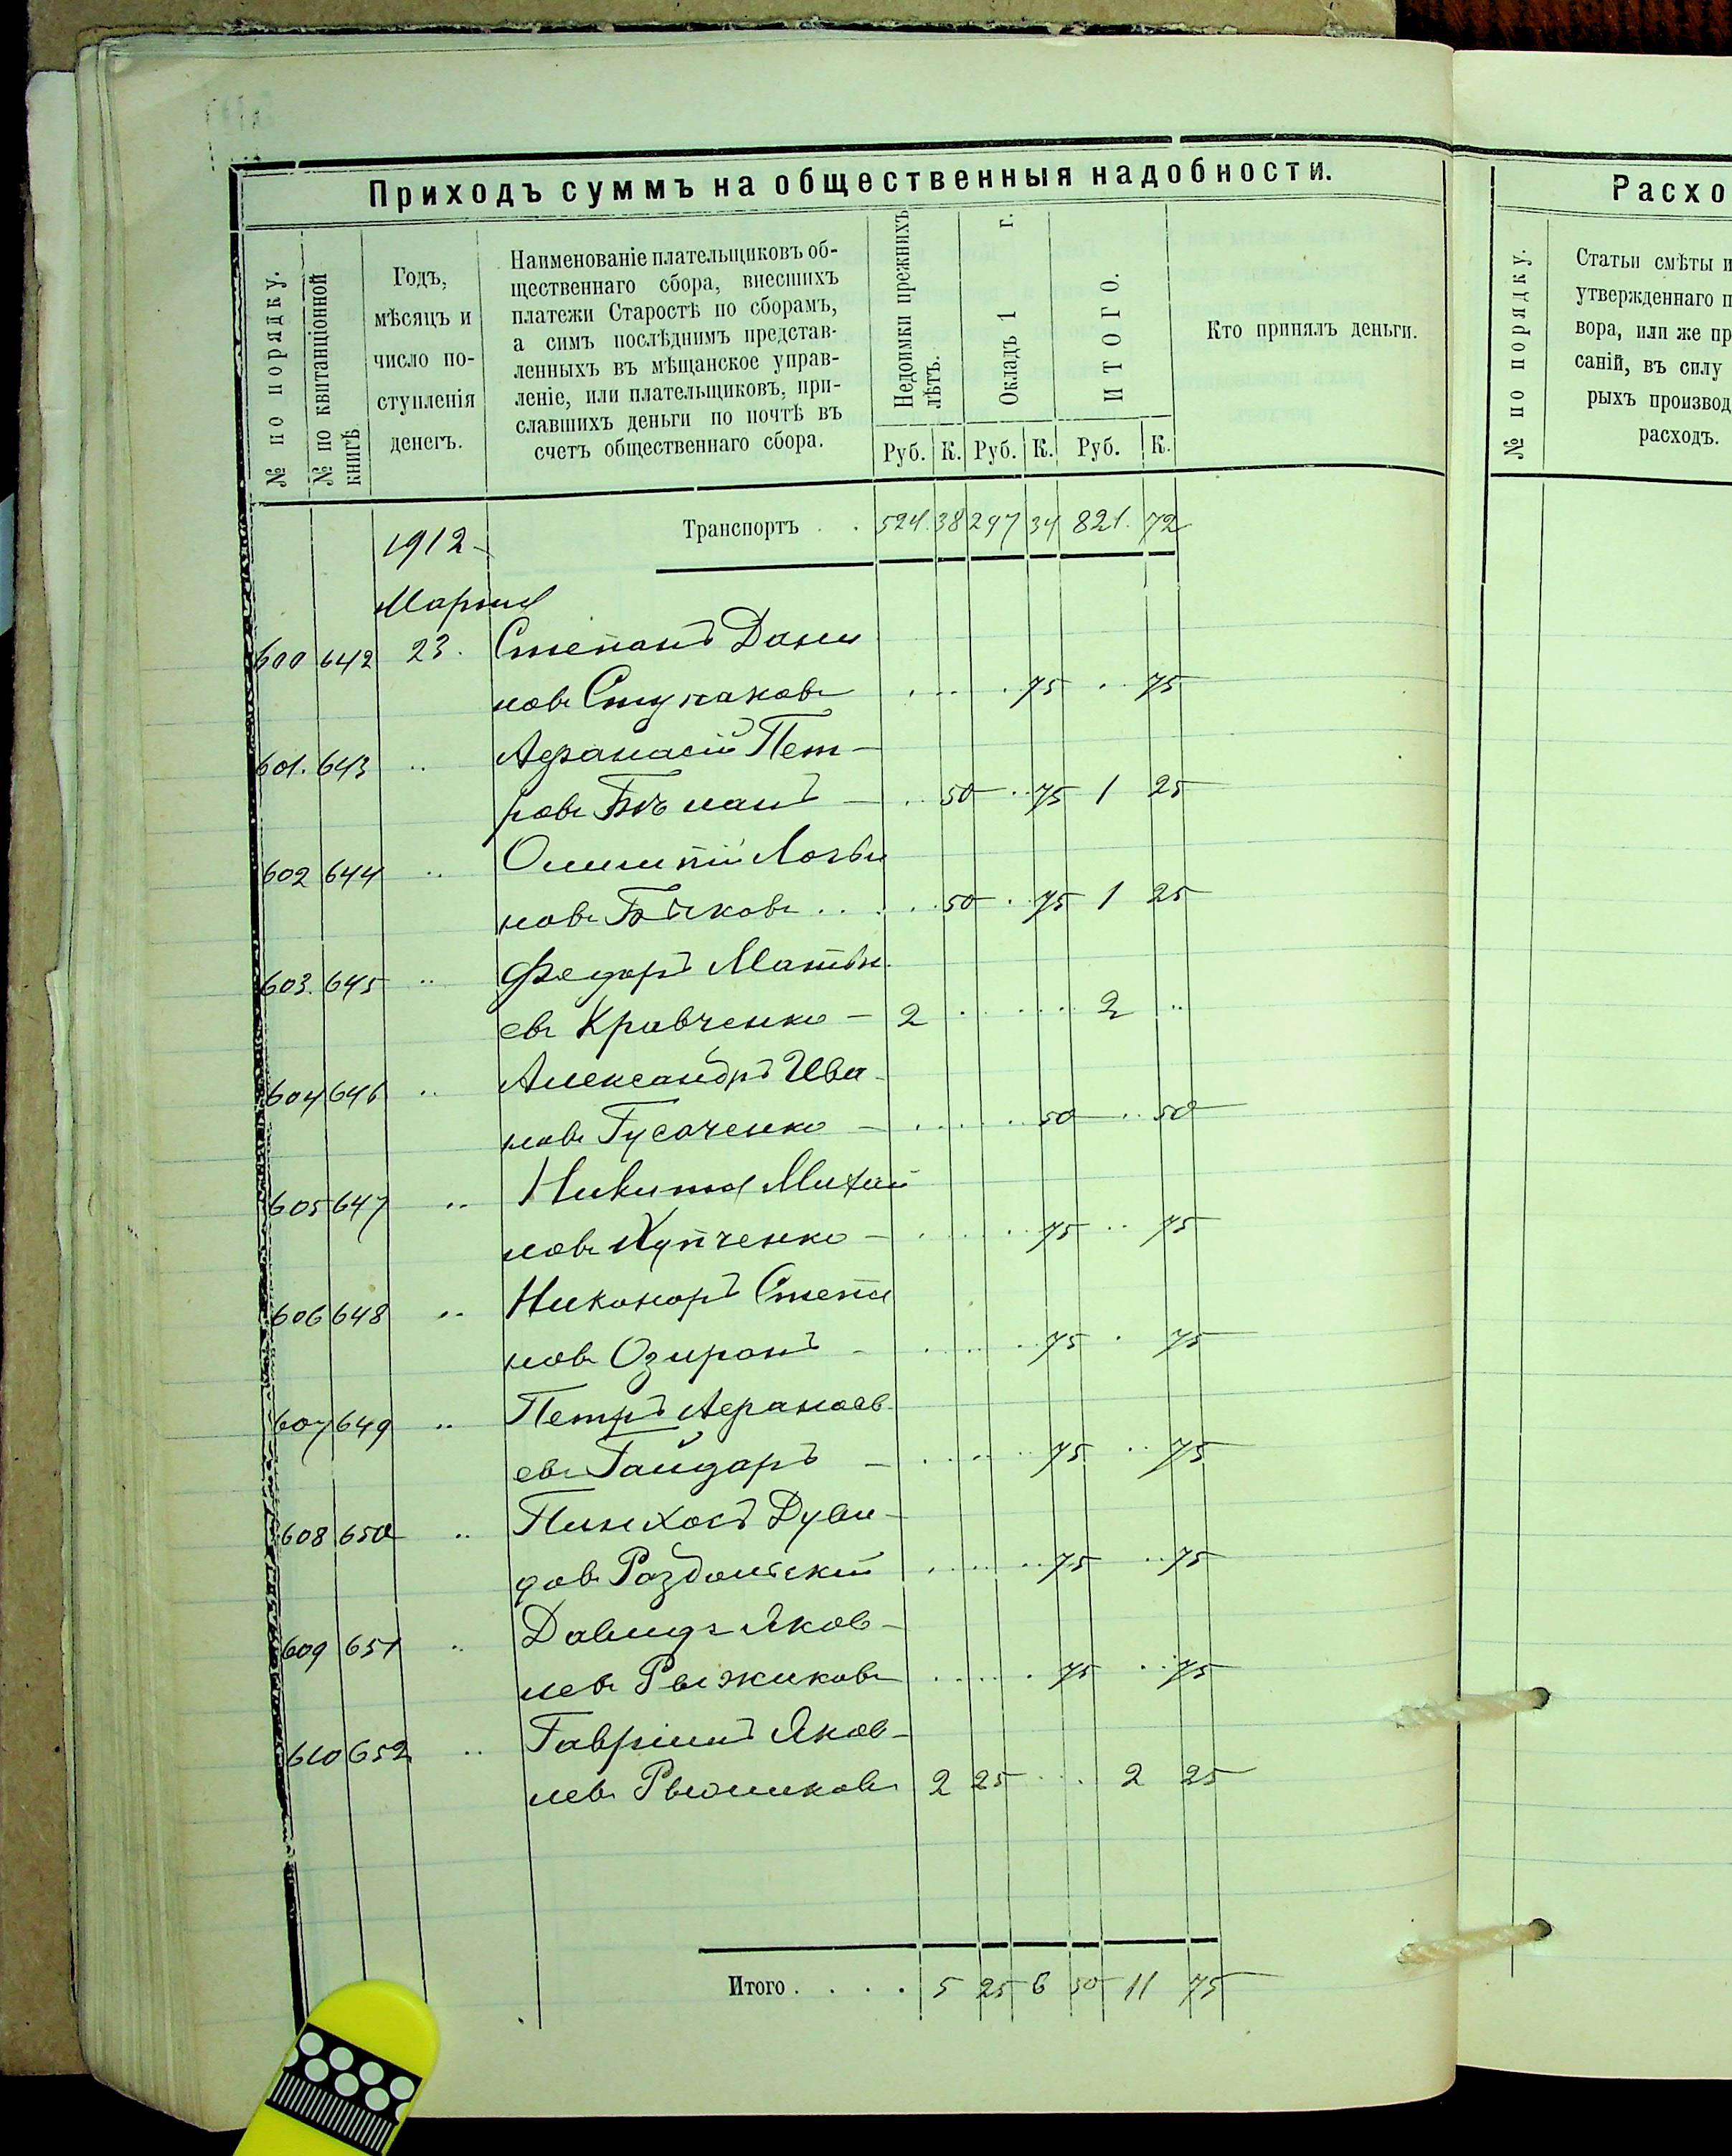 Приходъ суммъ на общественныя надобности.
№ по порядку.
№ по квитанціонной
книгѣ
Годъ,
мѣсяцъ и
число по-
ступленія
денегъ.
Наименованіе плательщиковъ об-
щественнаго сбора, внесшихъ
платежи Старостѣ по сборамъ,
а симъ послѣднимъ представ-
ленныхъ въ мѣщанское управ-
леніе, или плательщиковъ, при-
славшихъ деньги по почтѣ въ
счетъ общественнаго сбора.
Недоимки прежнихъ
лѣтъ.
Окладъ 1 г.
ИТОГО.
Кто принялъ деньги.
Руб. К. Руб. К. Руб. К.
1912 Транспортъ . . 524. 38 297 34 821. 72
Марта
600 642 23. Степанъ Дани
новъ Ступаковъ 75 75
601. 643 .. Афанасій Пет-
ровъ 50 75 1 25
602 644 .. Олимпій Логви
новъ Бѣлковъ 50 75 1 25
603. 645 .. Федоръ Матвѣ
евъ Кравченко - 2 2 ..
604 646 .. Александръ Ива-
новъ Гусаченко - 50 50
605 647 .. Никита Михай
ловъ Купченко - 75 75
606 648 .. Никоноръ Степа
новъ Озиранъ - 75 75
607 649 .. Петръ Афанасъ
евъ Гайдаръ - 75 75
608 650 .. Пинхосъ Дуви-
довъ Раздольскій 75 75
609 651 .. Давидъ Яков-
левъ Рыжиковъ 75 75
610 652 .. Гавріилъ Яков-
левъ Рыжиковъ 2 25 2 25
Итого . . . . 5 25 6 50 11 75
Расхо
№ по порядку.
Статьи смѣты и
утвержденнаго п
вора, или же пр
саній, въ силу
рыхъ производ
расходъ.